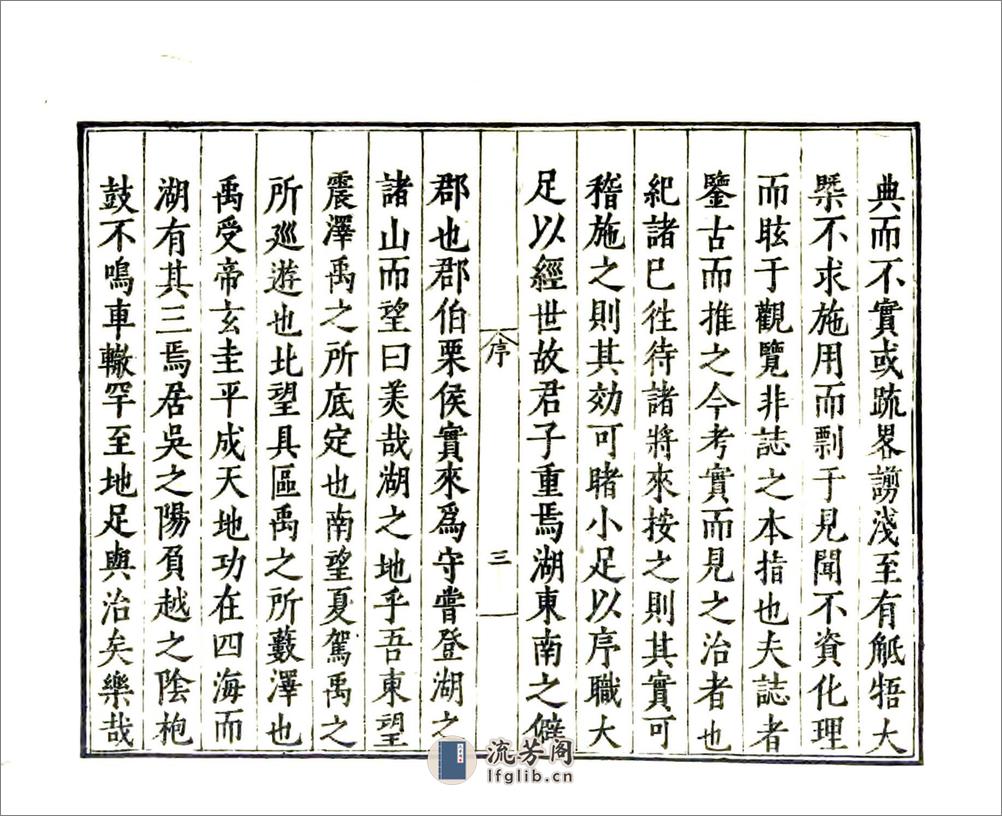 典而不實或疏畧謭淺至有觝牾大
槩不求施用而剽于見聞不資化理
而眩于觀覽非誌之本指也夫誌者
鑒古而推之今考實而見之治者也
紀諸已徃待諸將來按之則其實可
稽施之則其効可睹小足以序職大
足以經世故君子重焉湖東南之僻
序
三
郡也郡伯栗侯實來爲守嘗登湖之
諸山而望曰美哉湖之地乎吾東望
震澤禹之所底定也南望夏駕禹之
所廵遊也北望具區禹之所藪澤也
禹受帝玄圭平成天地功在四海而
湖有其三焉居吳之陽負越之陰枹
鼓不鳴車轍罕至地足與治矣樂哉
流芳阁
lfglib.cn